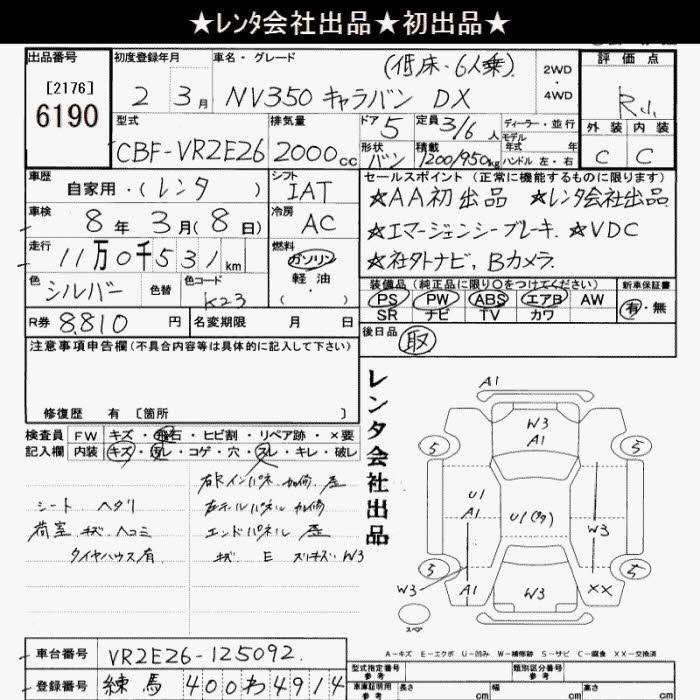 ★レンタ会社出品★初出品★
出品番号 初度登録年月 車名・グレード 2WD・4WD 評価点
[2176]
6190
2年 3月 NV350 キャラバン DX (低床・6人乗)
型式 排気量 ドア 定員 ディーラー・並行
CBF-VR2E26 2000cc 5 3/6人 モデル年式 年
形状 積載 ハンドル 左・右 外装 内装
バン 1200/950kg C C
車歴 シフト セールスポイント (正常に機能するものに限ります)
自家用・(レンタ) IAT ☆AA初出品 ☆レンタ会社出品
車検 冷房
8年 3月(8日) AC ☆エマージェンシーブレーキ ☆VDC
走行 燃料
11万0千531km ガソリン 軽油 ・( ) ☆社外ナビ、Bカメラ
色 色替 色コード 装備品 (純正品に限り〇をつけてください) 新車保証書
シルバー K23 PS PW ABS エアB AW 有・無
SR ナビ TV カワ
R券 8,810円 名変期限 月 日 後日品 取
注意事項申告欄(不具合内容等は具体的に記入して下さい)
修復歴 有 [箇所 ]
検査員 FW キズ・飛石・ヒビ割・リペア跡・×要
記入欄 内装 キズ・汚レ・コゲ・穴・スレ・キレ・破レ
シート ヘタリ
荷室 キズ ヘコミ
タイヤハウス有
エンドパネル
キズ E W3
レンタ会社出品
A1
W3
A1
5 5
U1
A1
U1(タ)
W3
5 5
W3 A1 W3 XX
スペア
A-キズ E-エクボ U-凹み W-補修跡 S-サビ C-腐食 XX-交換済
車台番号 VR2E26-125092
登録番号 練馬 400 わ 4914
型式指定番号 参考 類別区分番号 参考
車庫証明用 参考 長さ cm 幅 cm 高さ cm